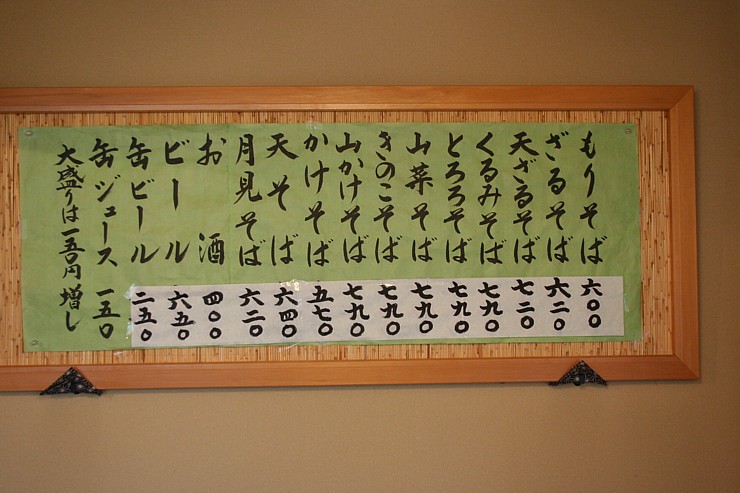 もりそば 六〇〇
ざるそば 六二〇
天ざるそば 七二〇
くるみそば 七九〇
とろろそば 七九〇
山菜そば 七九〇
きのこそば 七九〇
山かけそば 七九〇
かけそば 五七〇
天そば 六四〇
月見そば 六二〇
お酒 四〇〇
ビール 六五〇
缶ビール 二五〇
缶ジュース 一五〇
大盛りは一五〇円増し